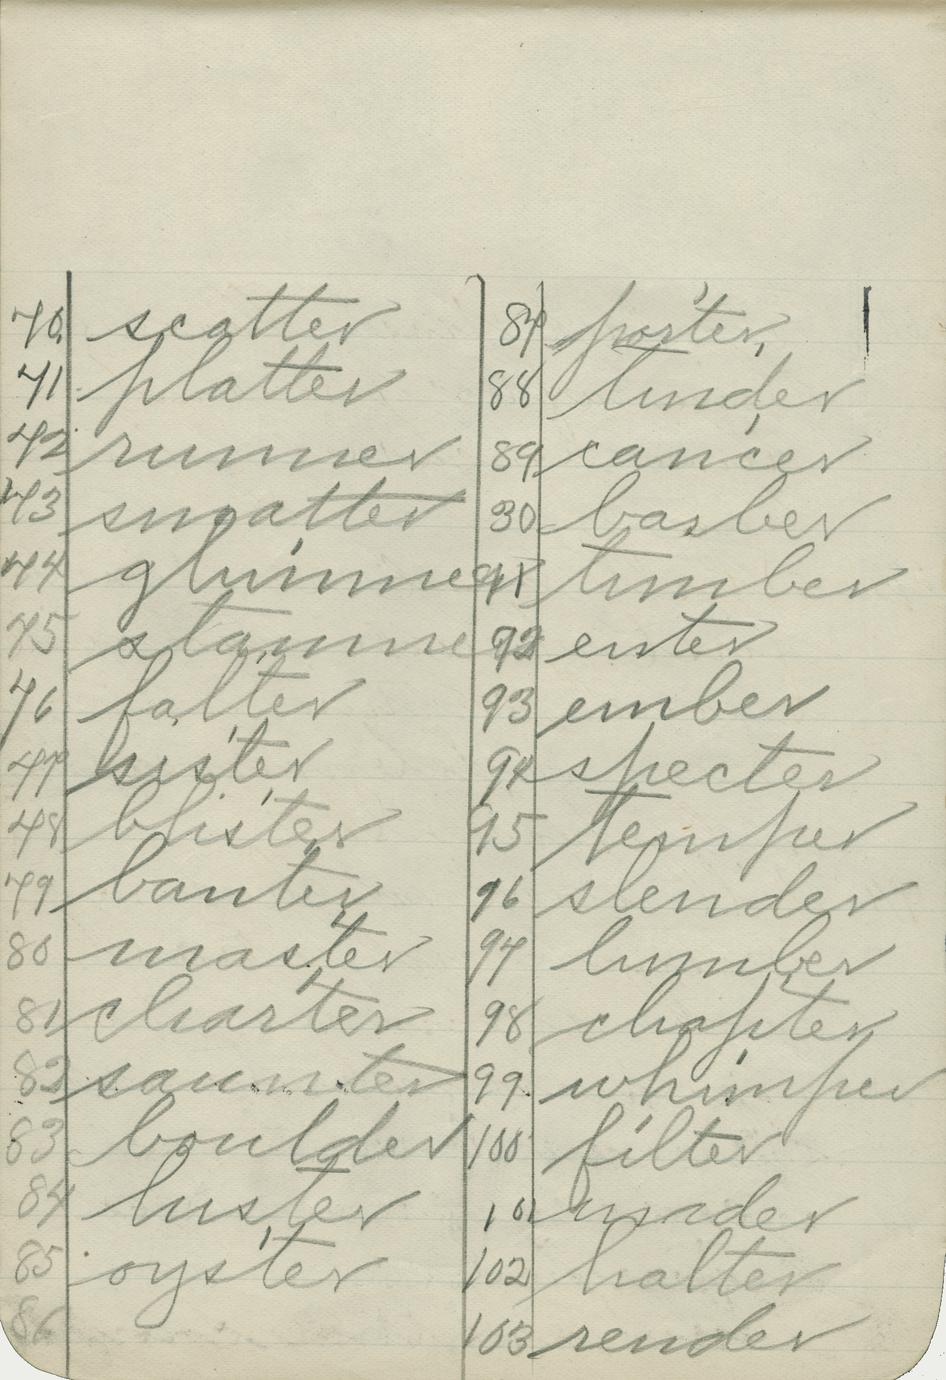 70. scatter
71 platter
72 runner
73 smatter
74 glimmer
75 stamme
76 falter
77 sister
78 blister
79 banter
80 master
81 charter
82 saunter
83 boulder
84 luster
85 oyster
86
87 porter,
88 tinder
89 cancer
90 barber
91 timber
92 enter
93 ember
94 specter
95 temper
96 slender
97 lumber
98 chapter
99. whimper
100 filter
101
102 halter
103 render